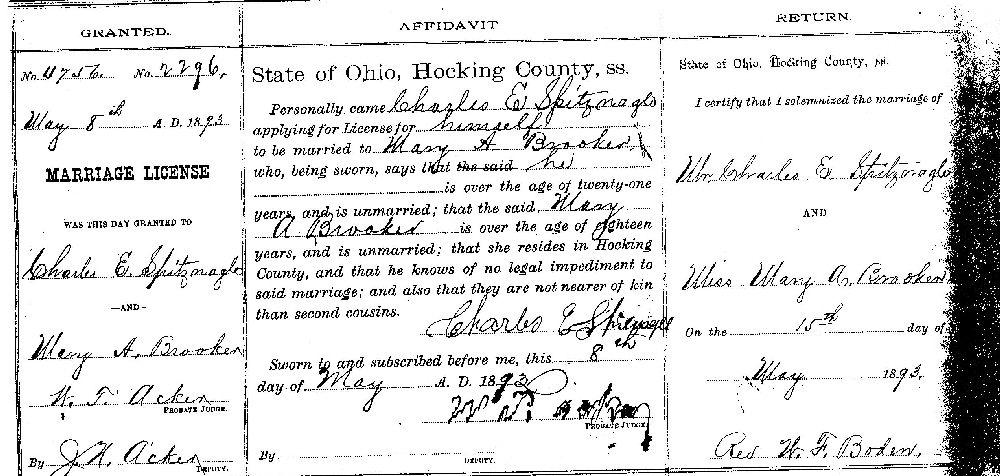 GRANTED.
No. 4756. No. 2296.
May 8th A. D. 1893
MARRIAGE LICENSE
WAS THIS DAY GRANTED TO
Charles E. Spitznagle
—AND—
Mary A. Brooker
W. T. Acker
PROBATE JUDGE.
By J. H. Acker
DEPUTY.
AFFIDAVIT
State of Ohio, Hocking County, ss.
Personally came Charles E Spitznagle
applying for License for himself
to be married to Mary A Brooker
who, being sworn, says that the said he
is over the age of twenty-one
years, and is unmarried; that the said Mary
A Brooker is over the age of eighteen
years, and is unmarried; that she resides in Hocking
County, and that he knows of no legal impediment to
said marriage; and also that they are not nearer of kin
than second cousins.
Charles E
Sworn to and subscribed before me, this 8th
day of May A. D. 1893
PROBATE JUDGE
By
DEPUTY.
RETURN.
State of Ohio, Hocking County, ss.
I certify that I solemnized the marriage of
Mr. Charles E Spitznagle
AND
Miss Mary A. Brooker
On the 15th day of
May 1893.
Rev W. F. Boden